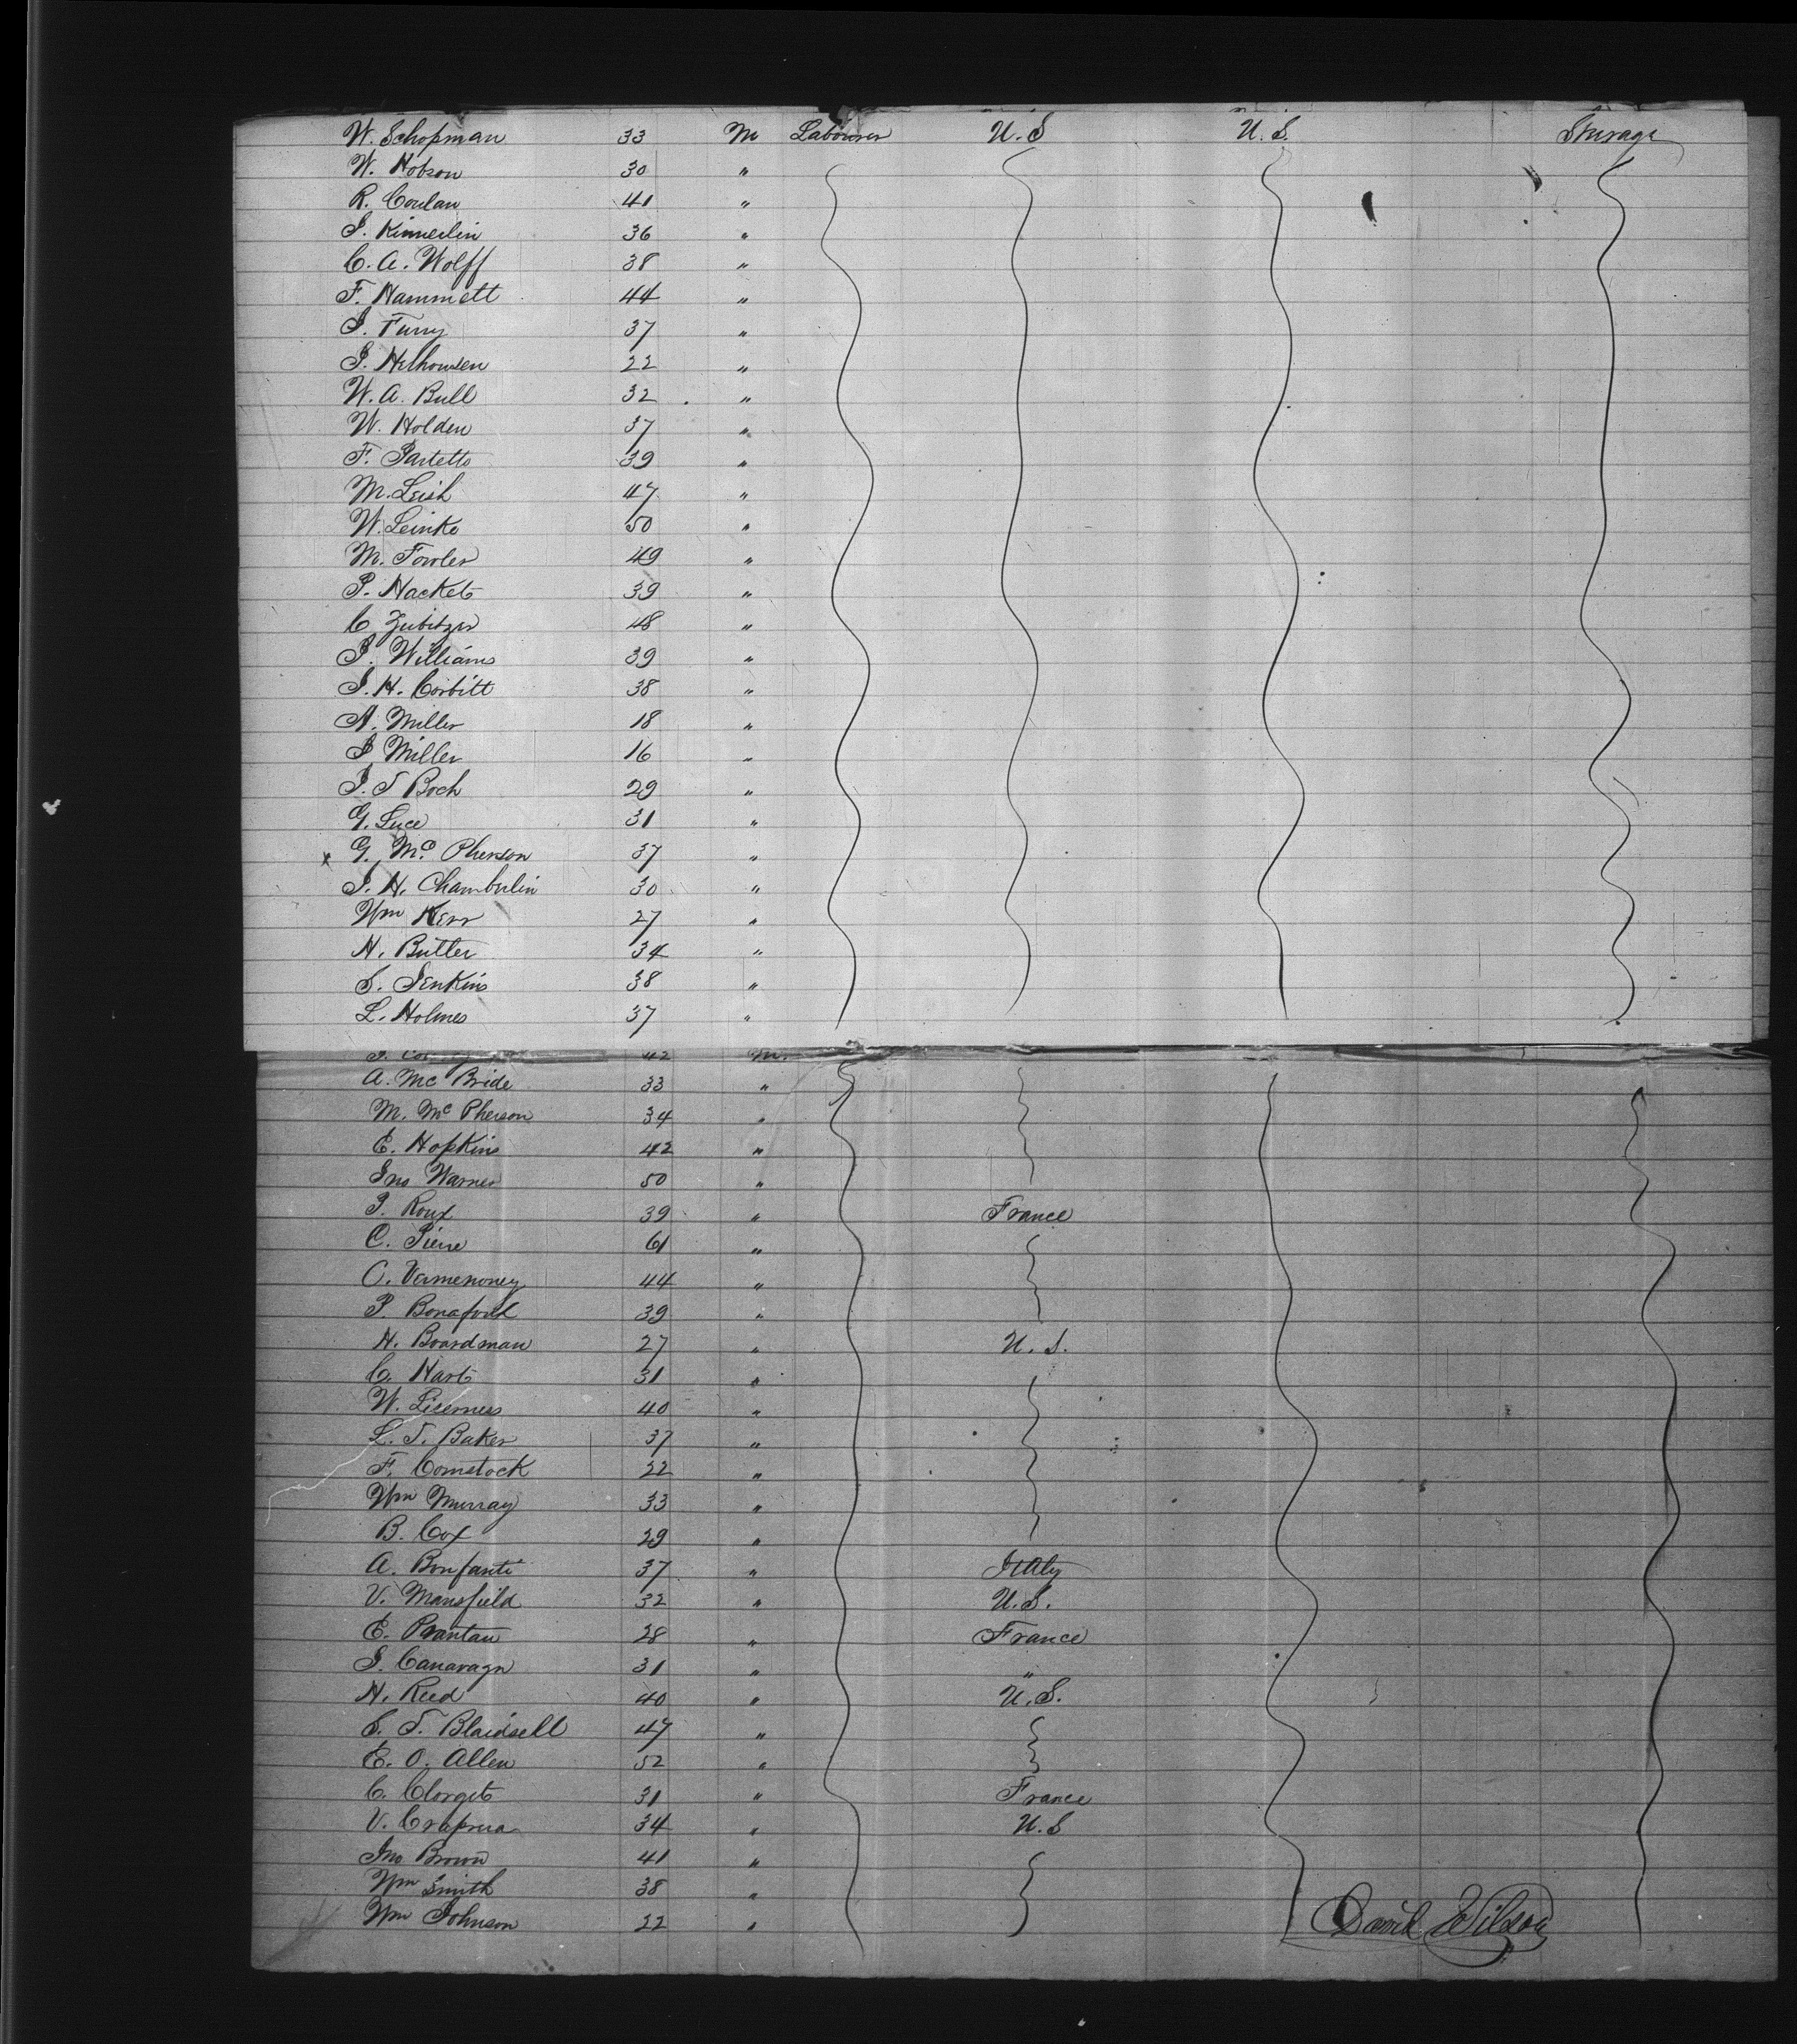 W. Schopman 33 M Labourer U.S U.S. Steerage
W. Hobson 30 "
R. Conlan 41 "
J. Kinnerlin 36 "
C. A. Wolff 38 "
F. Hammett 44 "
J. Furry 37 "
J. Helhousen 22 "
W. A. Bull 32 "
W. Holden 37 "
F. Partetto 39 "
M. Leish 47 "
W. Leinke 50 "
M. Fowler 49 "
P. Hacket 39 "
C Zubitzer 48 "
P. Williams 39 "
J. H. Corbitt 38 "
A. Miller 18 "
J Miller 16 "
J. T Boch 29 "
G. Luce 31 "
x G. Mc Pherson 37 "
J. H. Chamberlin 30 "
Wm Kerr 27 "
H. Butler 34 "
S. Jenkins 38 "
L. Holmes 37 "
42 M.
A. Mc Bride 33 "
M. Mc Pherson 34 "
E. Hopkins 42 "
Jno Warner 50 "
P. Roux 39 " France
C. Pierre 61 "
C. Vermenoney 44 "
P. Bonafoux 39 "
H. Boardman 27 " U. S.
C. Hart 31 "
W. Liserness 40 "
L. T. Baker 37 "
F. Comstock 22 "
Wm Murray 33 "
B. Cox 29 "
A. Bonfanti 37 " Italy
V. Mansfield 32 " U.S.
E. Prantau 28 " France
J. Canavagn 31 " "
H. Reed 40 " U.S.
S. T. Blaidsell 47 "
E. O. Allen 52 "
C. Clorget 31 " France
V. Craprua 34 " U.S
Jno Brown 41 "
Wm Smith 38 "
Wm Johnson 22 "
David Wilson